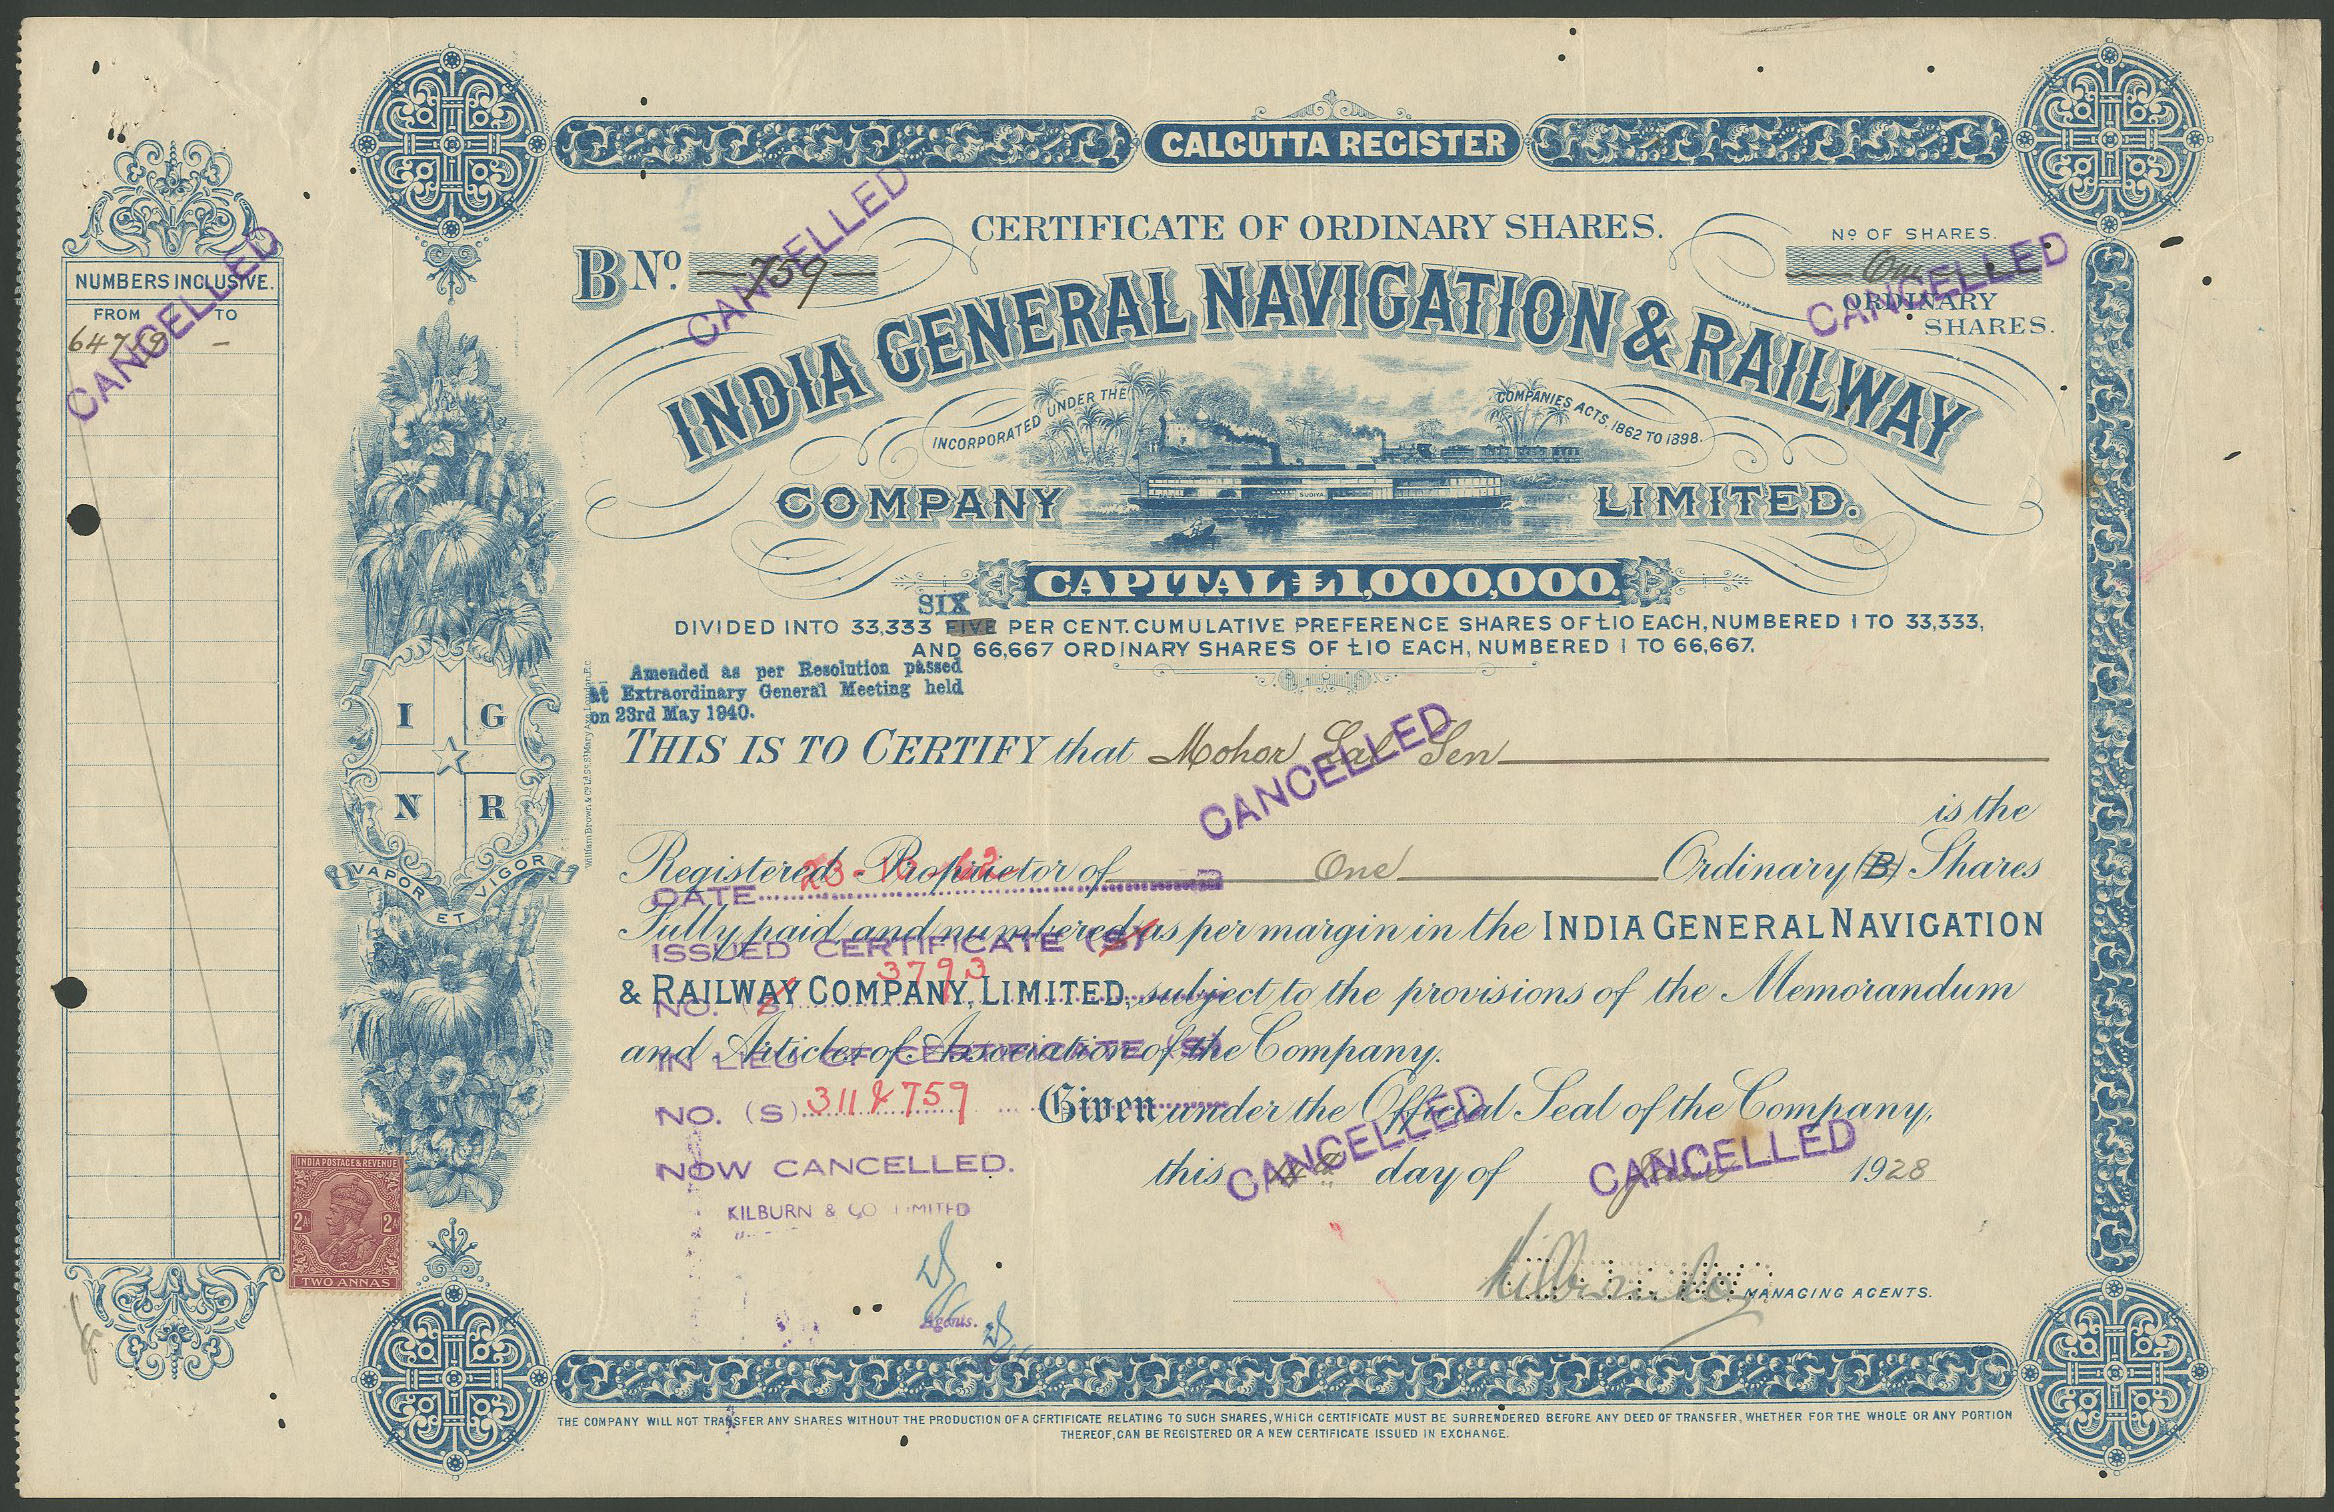 CALCUTTA REGISTER
CERTIFICATE OF ORDINARY SHARES.
B Nº. 759
Nº OF SHARES.
One
ORDINARY
SHARES.
CANCELLED
CANCELLED
CANCELLED
NUMBERS INCLUSIVE.
FROM TO
INDIA GENERAL NAVIGATION & RAILWAY
INCORPORATED UNDER THE COMPANIES ACTS, 1862 TO 1898.
SUDIYA
COMPANY LIMITED.
CAPITAL £1,000,000.
SIX
DIVIDED INTO 33,333 FIVE PER CENT. CUMULATIVE PREFERENCE SHARES OF £10 EACH, NUMBERED 1 TO 33,333,
AND 66,667 ORDINARY SHARES OF £10 EACH, NUMBERED 1 TO 66,667.
Amended as per Resolution passed
at Extraordinary General Meeting held
on 23rd May 1940.
I G
N R
VAPOR ET VIGOR
THIS IS TO CERTIFY that Mohor Lal Sen
CANCELLED
is the
Registered Proprietor of One Ordinary (B) Shares
DATE
Fully paid and numbered as per margin in the INDIA GENERAL NAVIGATION
ISSUED CERTIFICATE (S)
3793
& RAILWAY COMPANY, LIMITED, subject to the provisions of the Memorandum
NO. (S)
and Articles of Association of the Company.
IN LIEU OF CERTIFICATE (S)
NO. (S) 311 & 759
Given under the Official Seal of the Company,
NOW CANCELLED.
this day of June 1928
CANCELLED
CANCELLED
KILBURN & CO LIMITED
Agents.
Kilburn & Co
MANAGING AGENTS.
INDIA POSTAGE & REVENUE
2As 2As
TWO ANNAS
THE COMPANY WILL NOT TRANSFER ANY SHARES WITHOUT THE PRODUCTION OF A CERTIFICATE RELATING TO SUCH SHARES, WHICH CERTIFICATE MUST BE SURRENDERED BEFORE ANY DEED OF TRANSFER, WHETHER FOR THE WHOLE OR ANY PORTION
THEREOF, CAN BE REGISTERED OR A NEW CERTIFICATE ISSUED IN EXCHANGE.